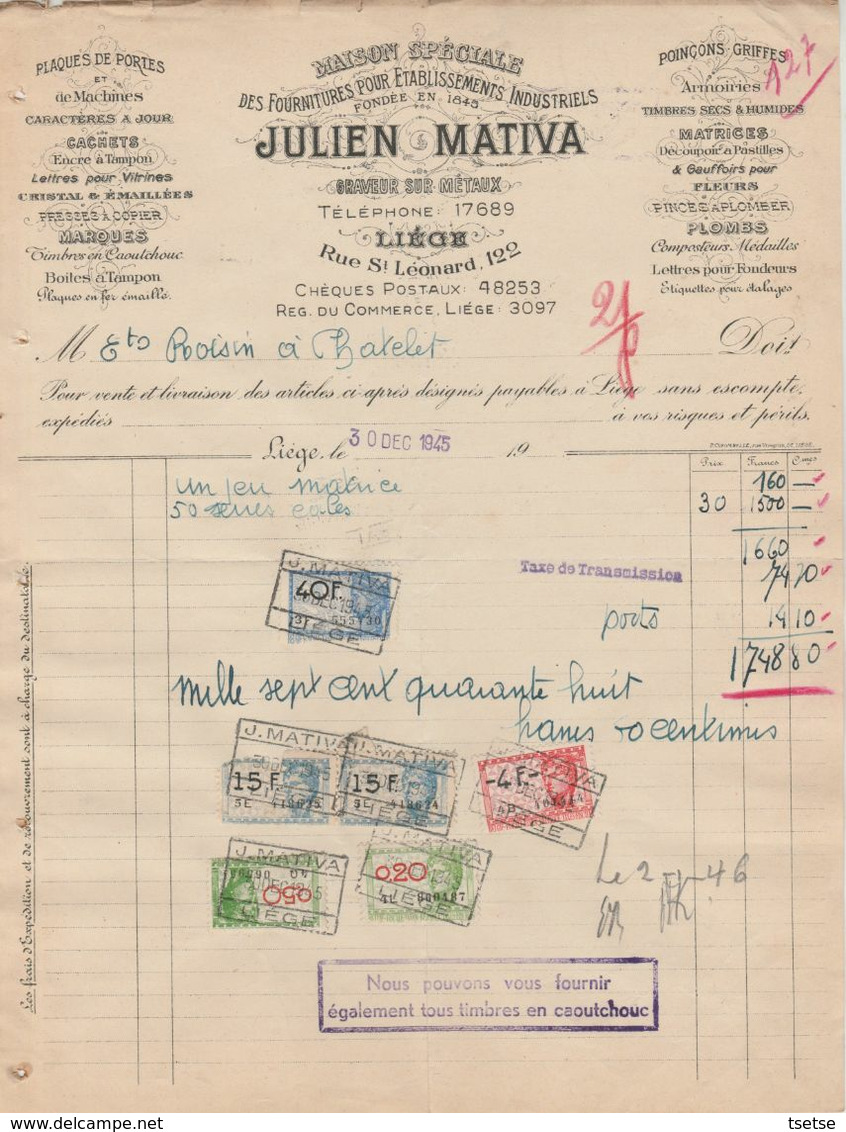 PLAQUES DE PORTES
ET
de Machines
CARACTÈRES A JOUR
CACHETS
Encre à Tampon
Lettres pour Vitrines
CRISTAL & ÉMAILLÉES
PRESSES À COPIER
MARQUES
Timbres en Caoutchouc
Boites à Tampon
Plaques en fer émaillé.
MAISON SPÉCIALE
DES FOURNITURES POUR ETABLISSEMENTS INDUSTRIELS
FONDÉE EN 1845
JULIEN MATIVA
GRAVEUR SUR MÉTAUX
TÉLÉPHONE: 17689
LIÉGE
Rue St Léonard, 122
CHÈQUES POSTAUX: 48253
REG. DU COMMERCE, LIÉGE: 3097
POINÇONS GRIFFES
Armoiries
127
TIMBRES SECS & HUMIDES
MATRICES
Découpoir à Pastilles
& Gauffoirs pour
FLEURS
PINCES A PLOMBER
PLOMBS
Composteurs. Médailles
Lettres pour Fondeurs
Etiquettes pour étalages
M Ets Roisin à Chatelet Doit
Pour vente et livraison des articles ci-après désignés payables à Liége sans escompte,
expédiés à vos risques et périls.
Liége, le 30 DEC 1945 19
Prix Francs Cmes
un jeu matrice 160 —
50 30 1500 —
1660
Taxe de Transmission 74 70
ports 14 10
1748 80
J. MATIVA
40 F.
30 DEC 1945
LIÉGE
mille sept cent quarante huit
francs 80 centimes
J. MATIVA
15 F.
5E 418625
LIÉGE
J. MATIVA
15 F.
5E 418624
LIÉGE
-4 F-
LIÉGE
J. MATIVA
0,50
30 DEC 1945
LIÉGE
J. MATIVA
0,20
800487
LIÉGE
Nous pouvons vous fournir
également tous timbres en caoutchouc
Les frais d'Expédition et de recouvrement sont à charge du destinataire.
© tsetse